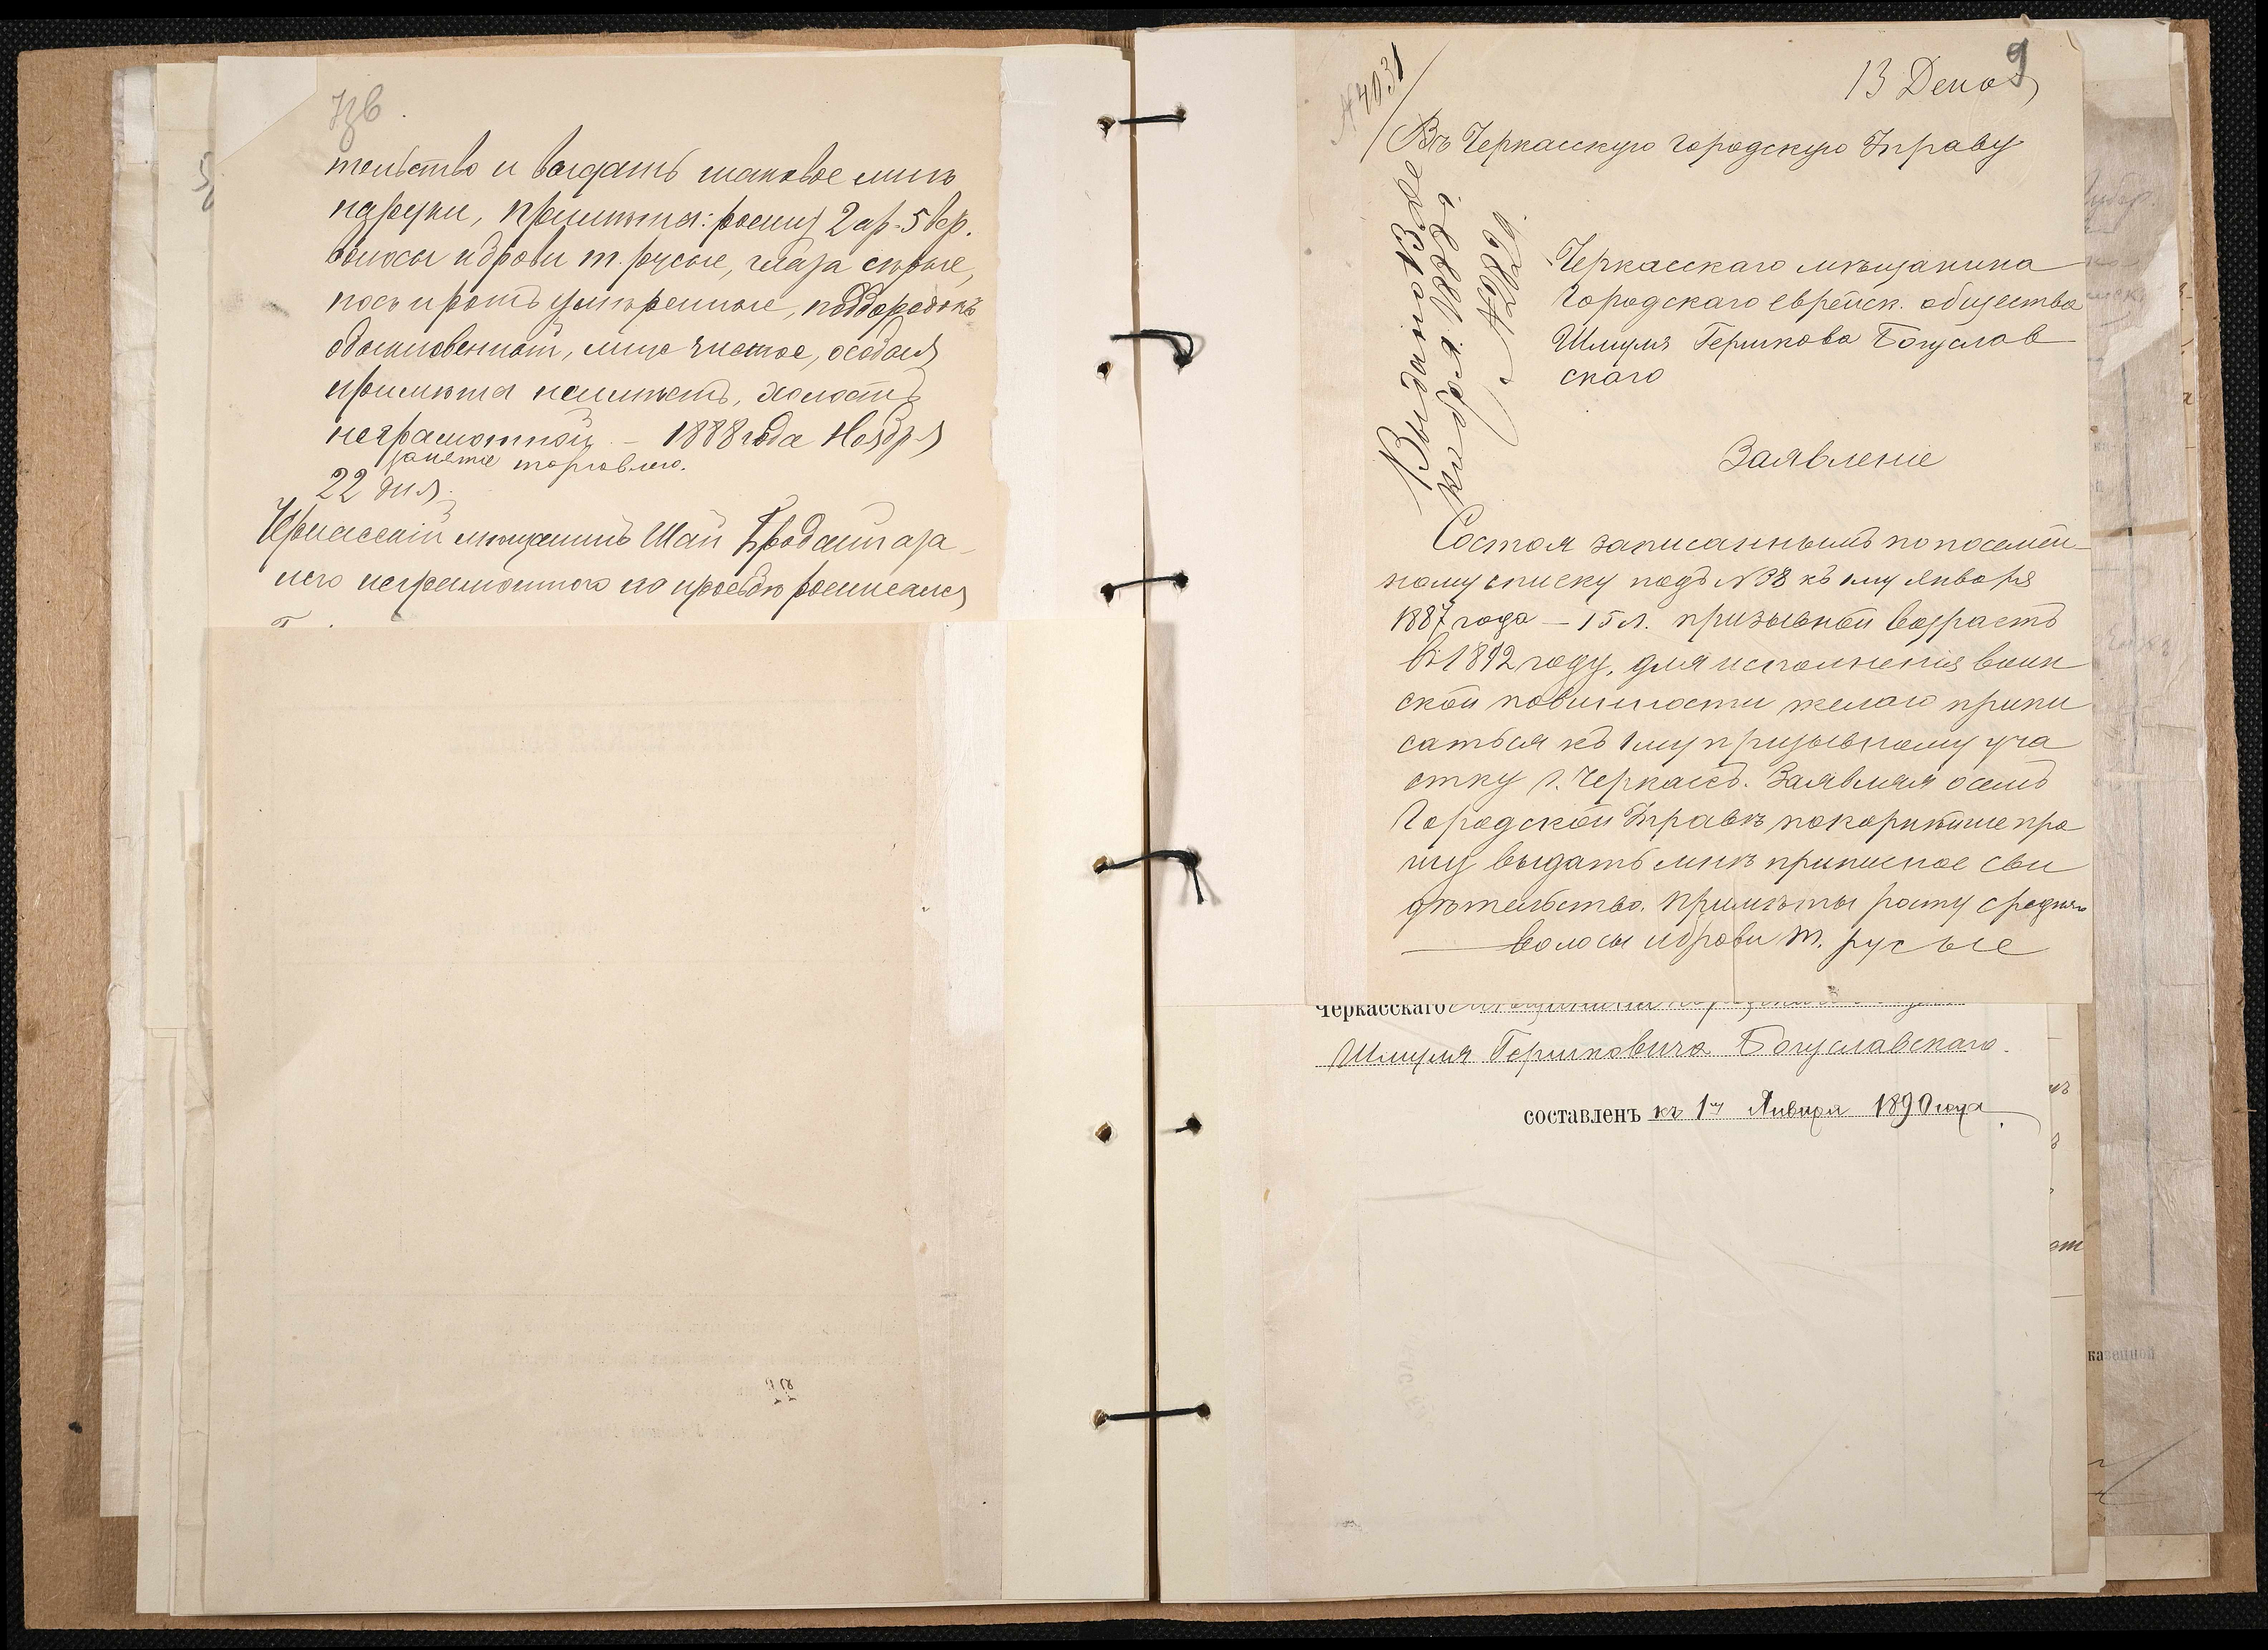 тельство и выдать таковое мнѣ
на руки, примѣты: росту 2 ар. 5 вер.
волосы и брови т. русые, глаза сѣрые,
носъ и ротъ умѣренные, подбородокъ
обыкновенный, лице чистое, особыя
примѣта неимѣетъ, холостъ
неграмотной – 1888 года Ноября
занятіе торговлею.
22 дня.
Черкасскій мѣщанинъ Шаи а за
него неграмотнаго по просьбѣ росписался
№4031
13 Дека
9
Въ Черкасскую Городскую Управу
Черкасскаго мѣщанина
Городскаго еврейск. общества
Шмуля Гершкова Богуслав
скаго
Заявленіе
Состоя записаннымъ по посемей-
ному списку подъ №38 къ 1му Января
1887 года – 15 л. призывной возрастъ
въ 1892 году, для исполненія воин
ской повинности желаю припи
саться къ 1му призывному уча
стку г. Черкасъ. Заявляя о семъ
Городской Управѣ покорнѣйше про
шу выдать мнѣ приписное сви
дѣтельство. Примѣты росту средняго
волосы и брови т. русые
Черкасскаго
Шмуля Гершковича Богуславскаго.
составленъ къ 1му Января 1890 года
казенной